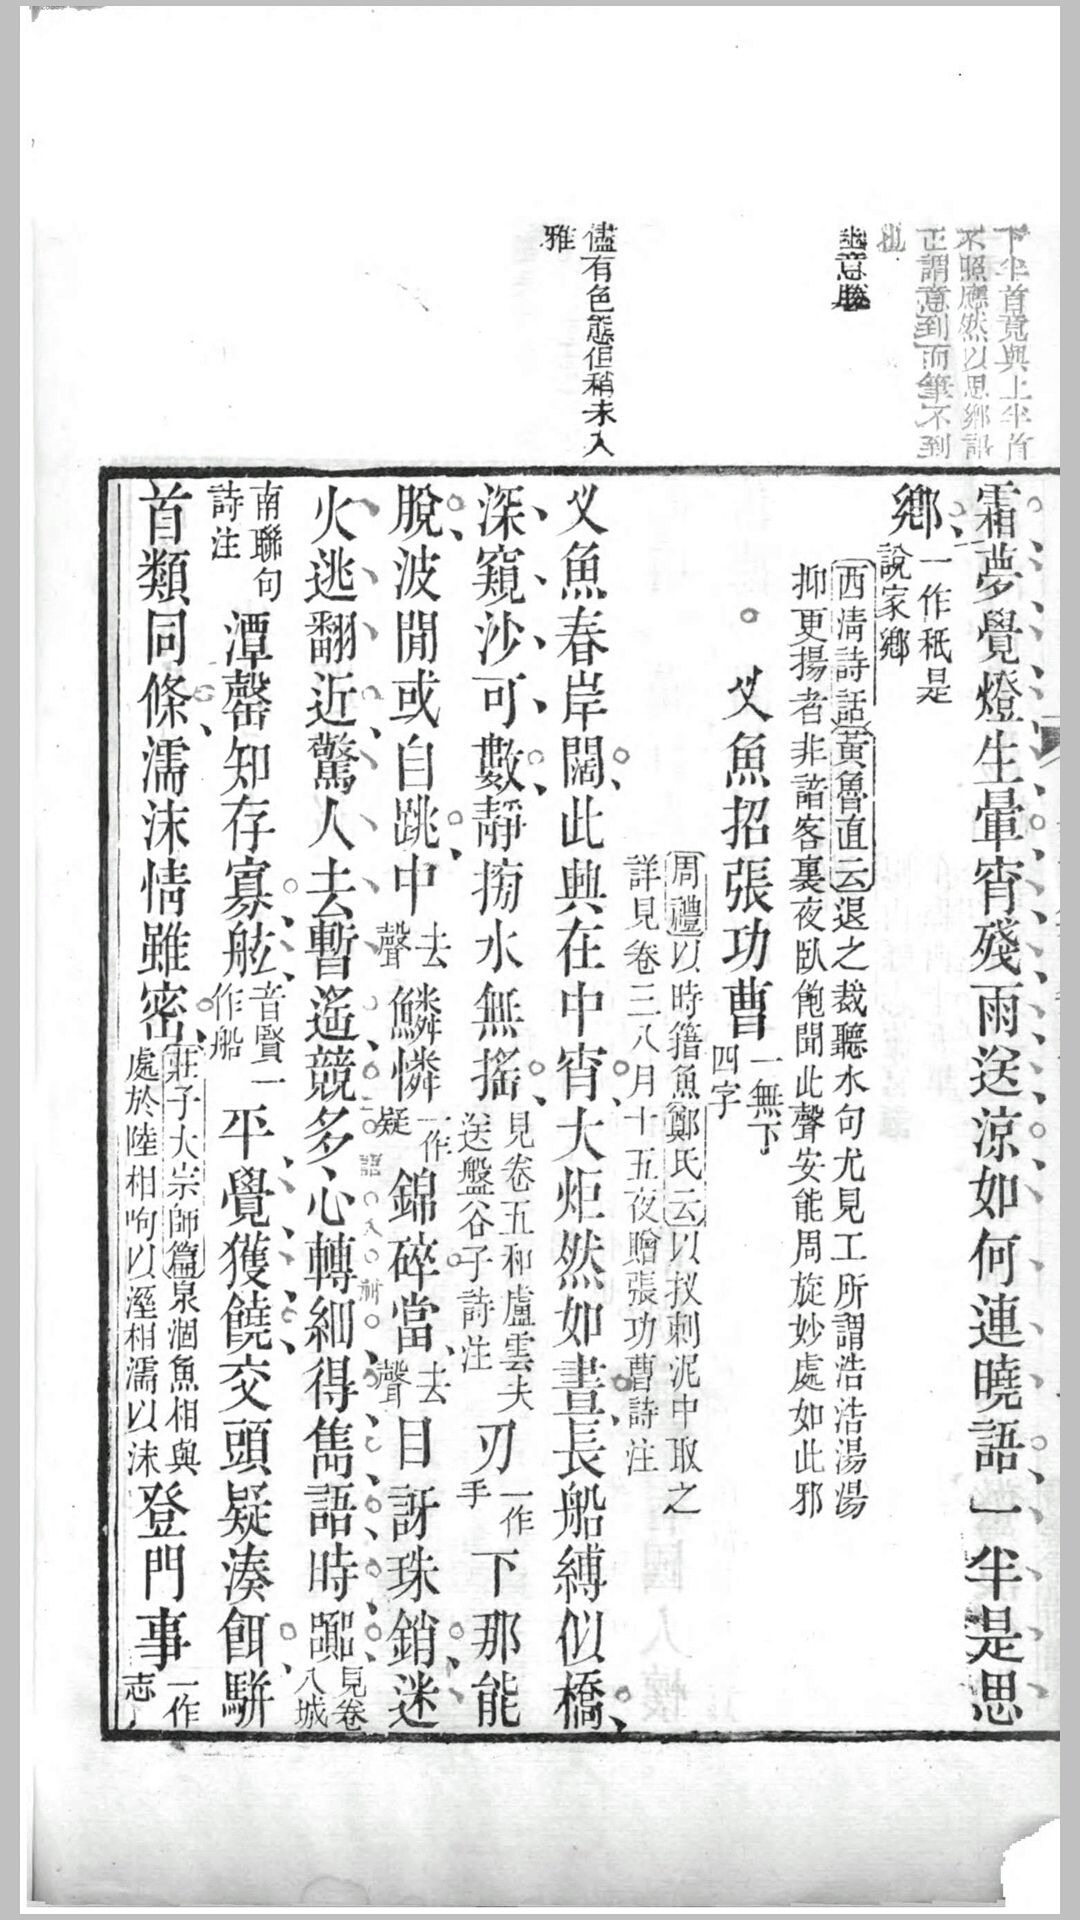 下半首竟與上半首
不照應然以思鄉語
正謂意到而筆不到
也
幽意勝
儘有色態但稍未入
雅
霜夢覺燈生暈宵殘雨送涼如何連曉語一半是思
鄉一作秖是說家鄉
西清詩話黃魯直云退之裁聽水句尤見工所謂浩浩湯湯
抑更揚者非諳客裏夜臥飽聞此聲安能周旋妙處如此邪
叉魚招張功曹一無下四字
周禮以時籍魚鄭氏云以扠刺泥中取之
詳見卷三八月十五夜贈張功曹詩注
叉魚春岸闊此興在中宵大炬然如晝長船縛似橋
深窺沙可數靜搒水無搖見卷五和盧雲夫送盤谷子詩注刃一作手下那能
脫波閒或自跳中去聲鱗憐一作疑錦碎當去聲目訝珠銷迷
火逃翻近驚人去暫遙競多心轉細得雋語時嚻見卷八城
南聯句詩注潭罄知存寡舷音賢一作船平覺獲饒交頭疑湊餌駢
首類同條濡沫情雖密莊子大宗師篇泉涸魚相與處於陸相呴以溼相濡以沫登門事一作志